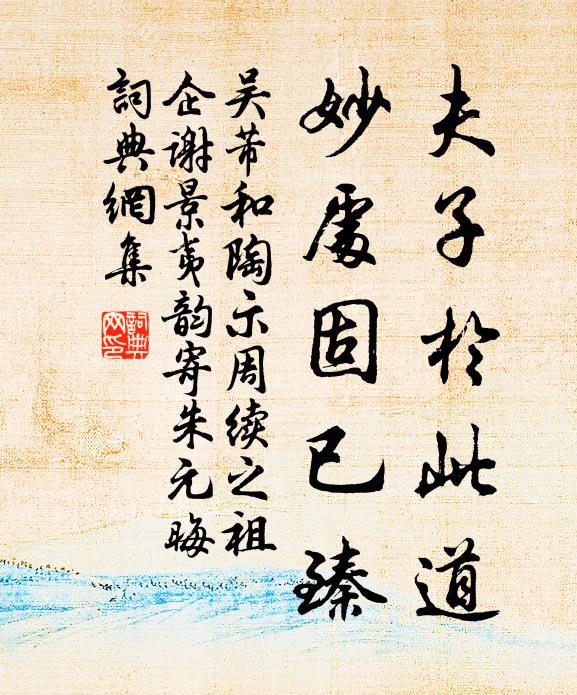 夫子於此道
妙處固已臻
吴芾和陶示周续之祖
企谢景夷韵寄朱元晦
詞典網集
詞典
网印